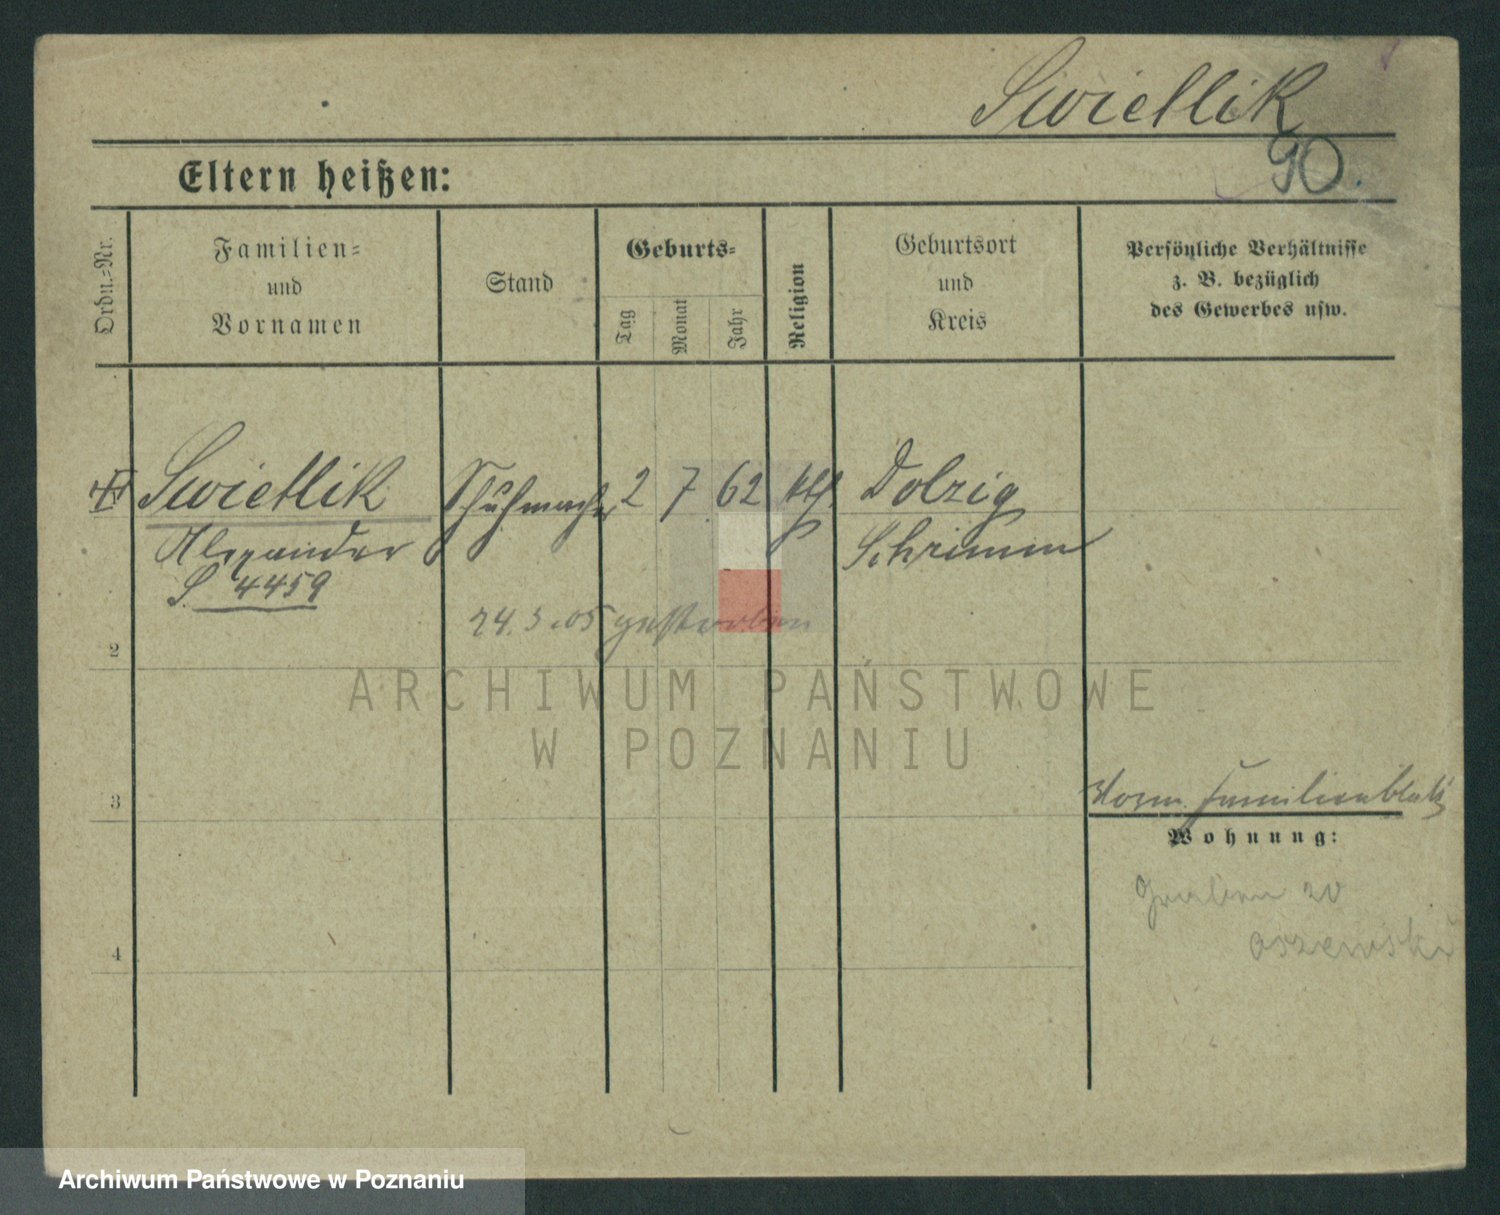 Swietlik
90.
Eltern heißen:
Ordn.=Nr.
Familien=
und
Vornamen
Stand
Geburts=
Tag
Monat
Jahr
Religion
Geburtsort
und
Kreis
Persönliche Verhältnisse
z. B. bezüglich
des Gewerbes usw.
Swietlik Schuhmacher 2 7 62 kth. Dolzig
Alexander Schrimm
S. 4459
24. 3. 05 gestorben
2
ARCHIWUM PAŃSTWOWE
W POZNANIU
3
Familienblatt
Wohnung:
Graben 20
4
Archiwum Państwowe w Poznaniu